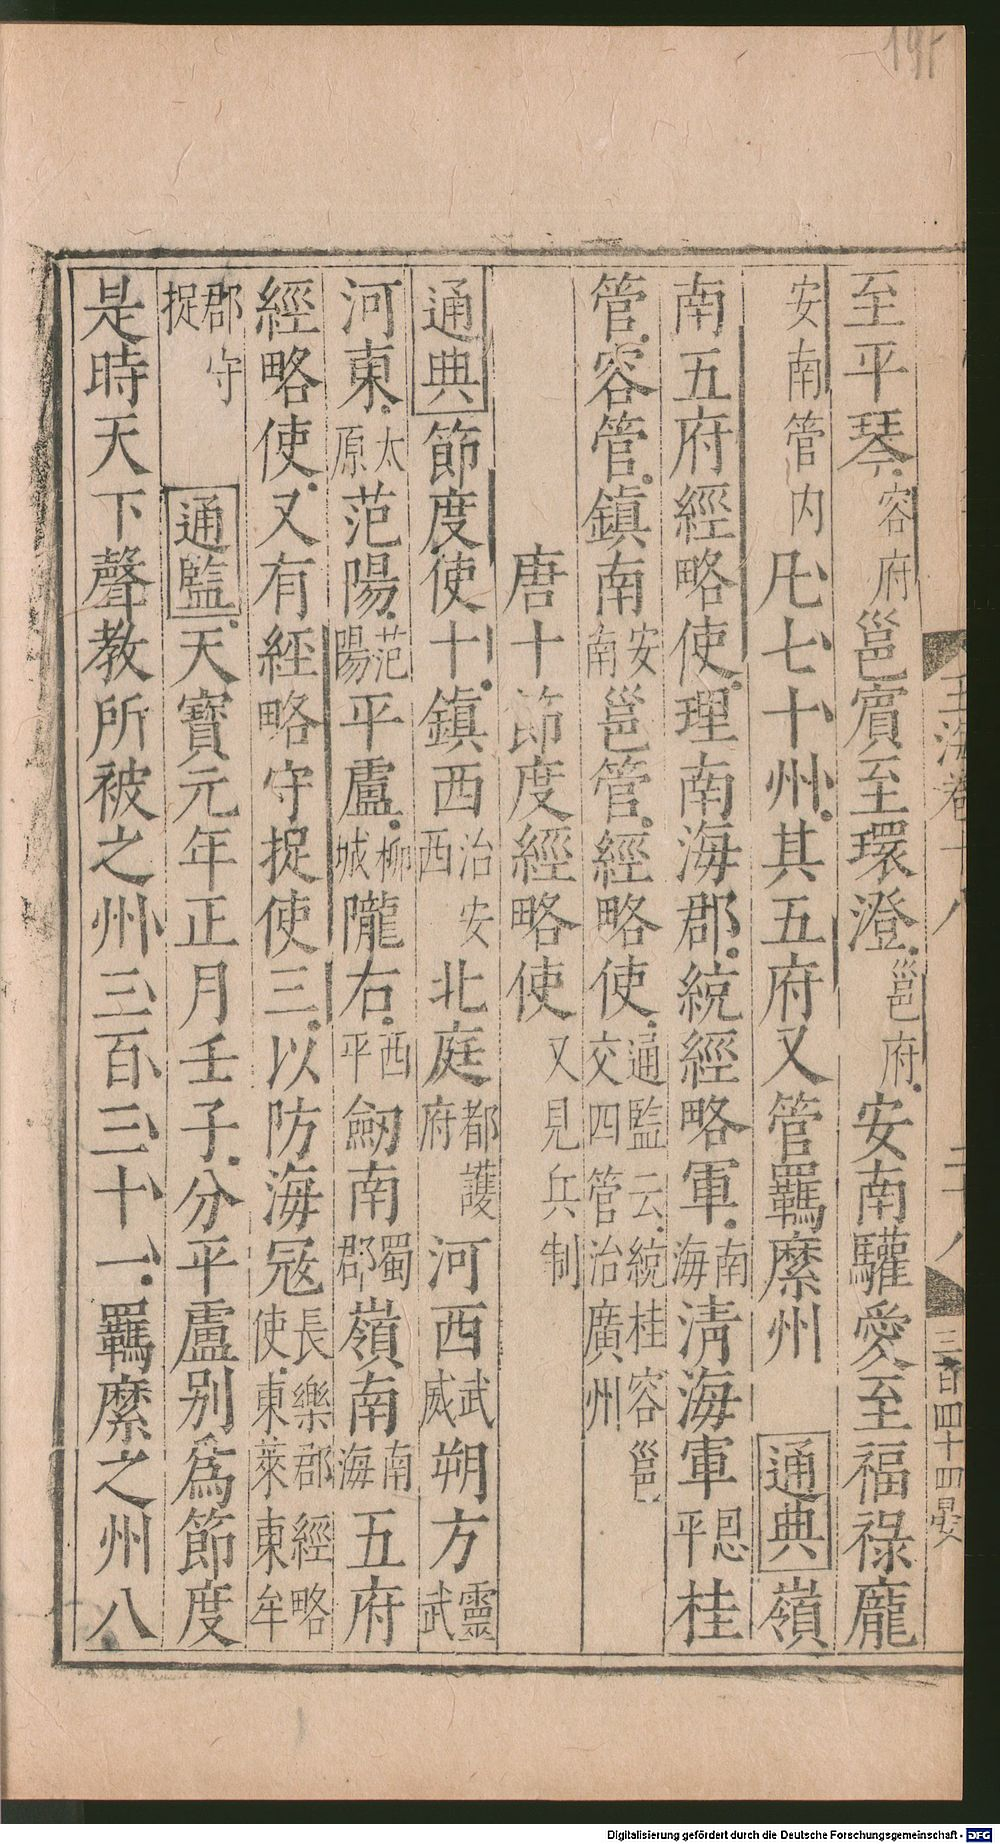 至平琴容府邕賔至環澄邕府安南驩愛至福祿龐
安南管内凡七十州其五府又管羈縻州通典嶺
南五府經略使理南海郡統經略軍南海淸海軍恩平桂
管容管鎮南安南邕管經略使通監云統桂容邕交四管治廣州
唐十節度經略使又見兵制
通典節度使十鎮西治安西北庭都護府河西武威朔方靈武
河東太原范陽范陽平盧柳城隴右西平劒南蜀郡嶺南南海五府
經略使又有經略守捉使三以防海冦長樂郡經略使東萊東牟
郡守捉通監天寶元年正月壬子分平盧别爲節度
是時天下聲教所被之州三百三十一羈縻之州八
玉海卷十八
三百四十四晏
Digitalisierung gefördert durch die Deutsche Forschungsgemeinschaft - DFG